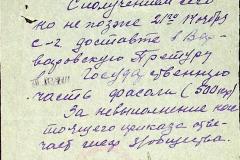 С получением сего
но не позже 21го Ноября
с-г. доставте в Вар-
варовскую Претуру
в Государственную
часть фасоли (500 кгр)
За невыполнение нас-
тоящего приказа отве-
чает шеф Общества.